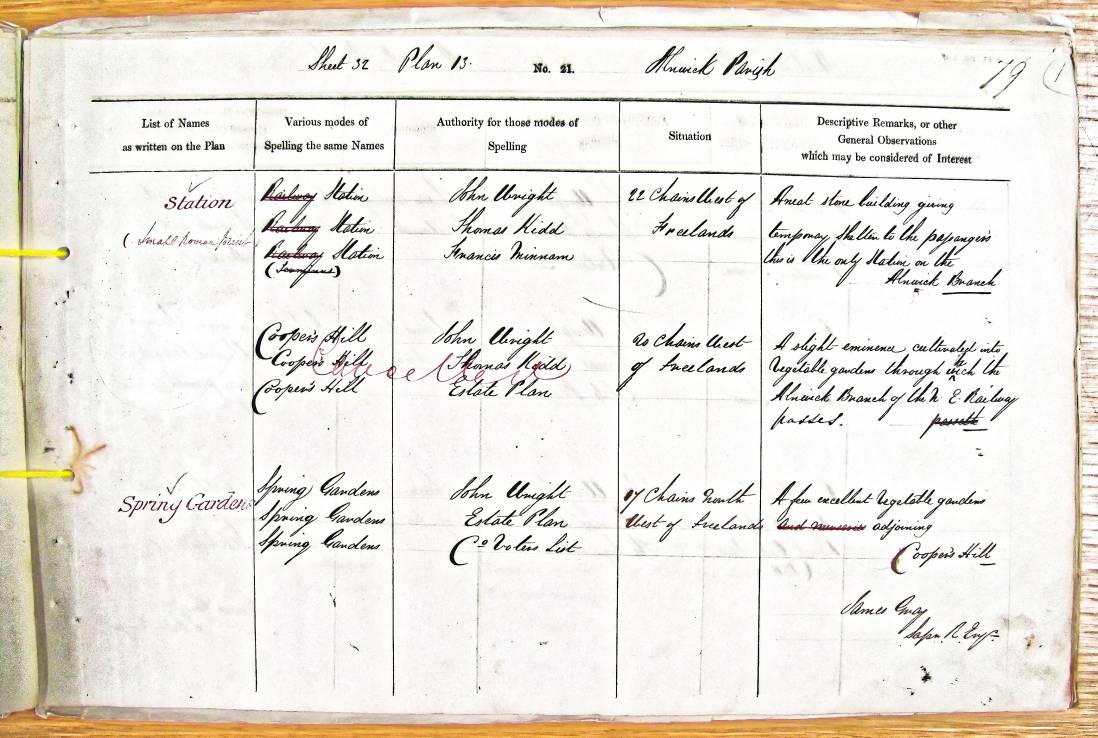 Sheet 32 Plan 13. No. 21. Alnwick Parish
19
List of Names
as written on the Plan
Various modes of
Spelling the same Names
Authority for those modes of
Spelling
Situation
Descriptive Remarks, or other
General Observations
which may be considered of Interest
Station
(Small Roman Print)
Railway Station
Railway Station
Railway Station
(Terminus)
John Wright
Thomas Kidd
Francis Minnam
22 Chains West of
Freelands
A neat stone building giving
temporary shelter to the passengers
this is the only Station on the
Alnwick Branch
Cooper's Hill
Cooper's Hill
Cooper's Hill
John Wright
Thomas Kidd
Estate Plan
20 Chains West
of Freelands
A slight eminence cultivated into
Vegetable gardens through wich the
Alnwick Branch of the N. E. Railway
passes.
Spring Gardens
Spring Gardens
Spring Gardens
Spring Gardens
John Wright
Estate Plan
Co Voters List
17 Chains North
West of Freelands
A few excellent Vegetable gardens
and nurseries adjoining
Cooper's Hill
James Gray
Sapr. R. Engrs